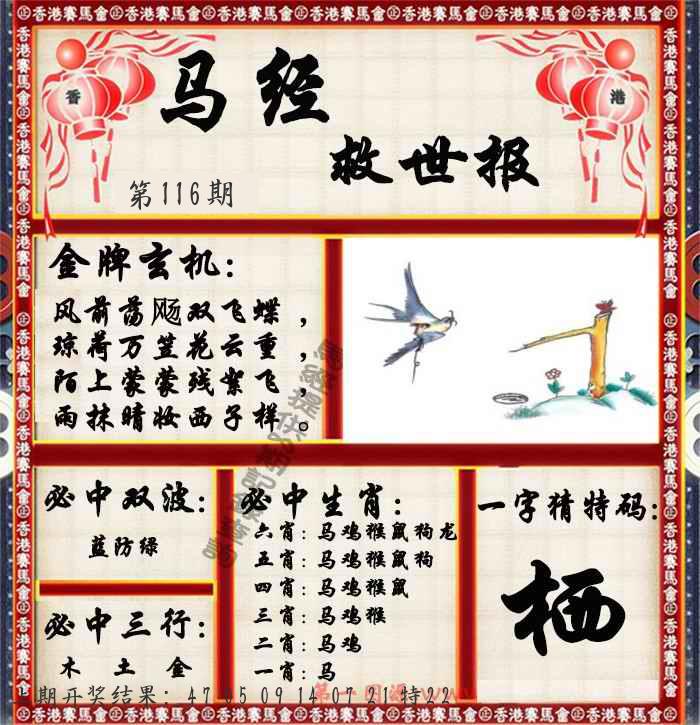 香港賽馬會
香
港
马经
救世报
第116期
金牌玄机：
风前荡飏双飞蝶，
琼荷万笠花云重，
陌上蒙蒙残絮飞，
雨抹晴妆西子样。
必中双波：
蓝防绿
必中三行：
木 土 金
必中生肖：
六肖：马鸡猴鼠狗龙
五肖：马鸡猴鼠狗
四肖：马鸡猴鼠
三肖：马鸡猴
二肖：马鸡
一肖：马
一字猜特码：
栖
期开奖结果：47 05 09 14 07 21特22